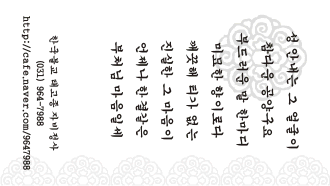 성 안내는 그 얼굴이
참다운 공양구요
부드러운 말 한마디
미묘한 향이로다
깨끗해 티가 없는
진실한 그 마음이
언제나 한결같은
부처님 마음일세
한국불교 태고종 자비정사
(031) 964-7988
http://cafe.naver.com/9647988